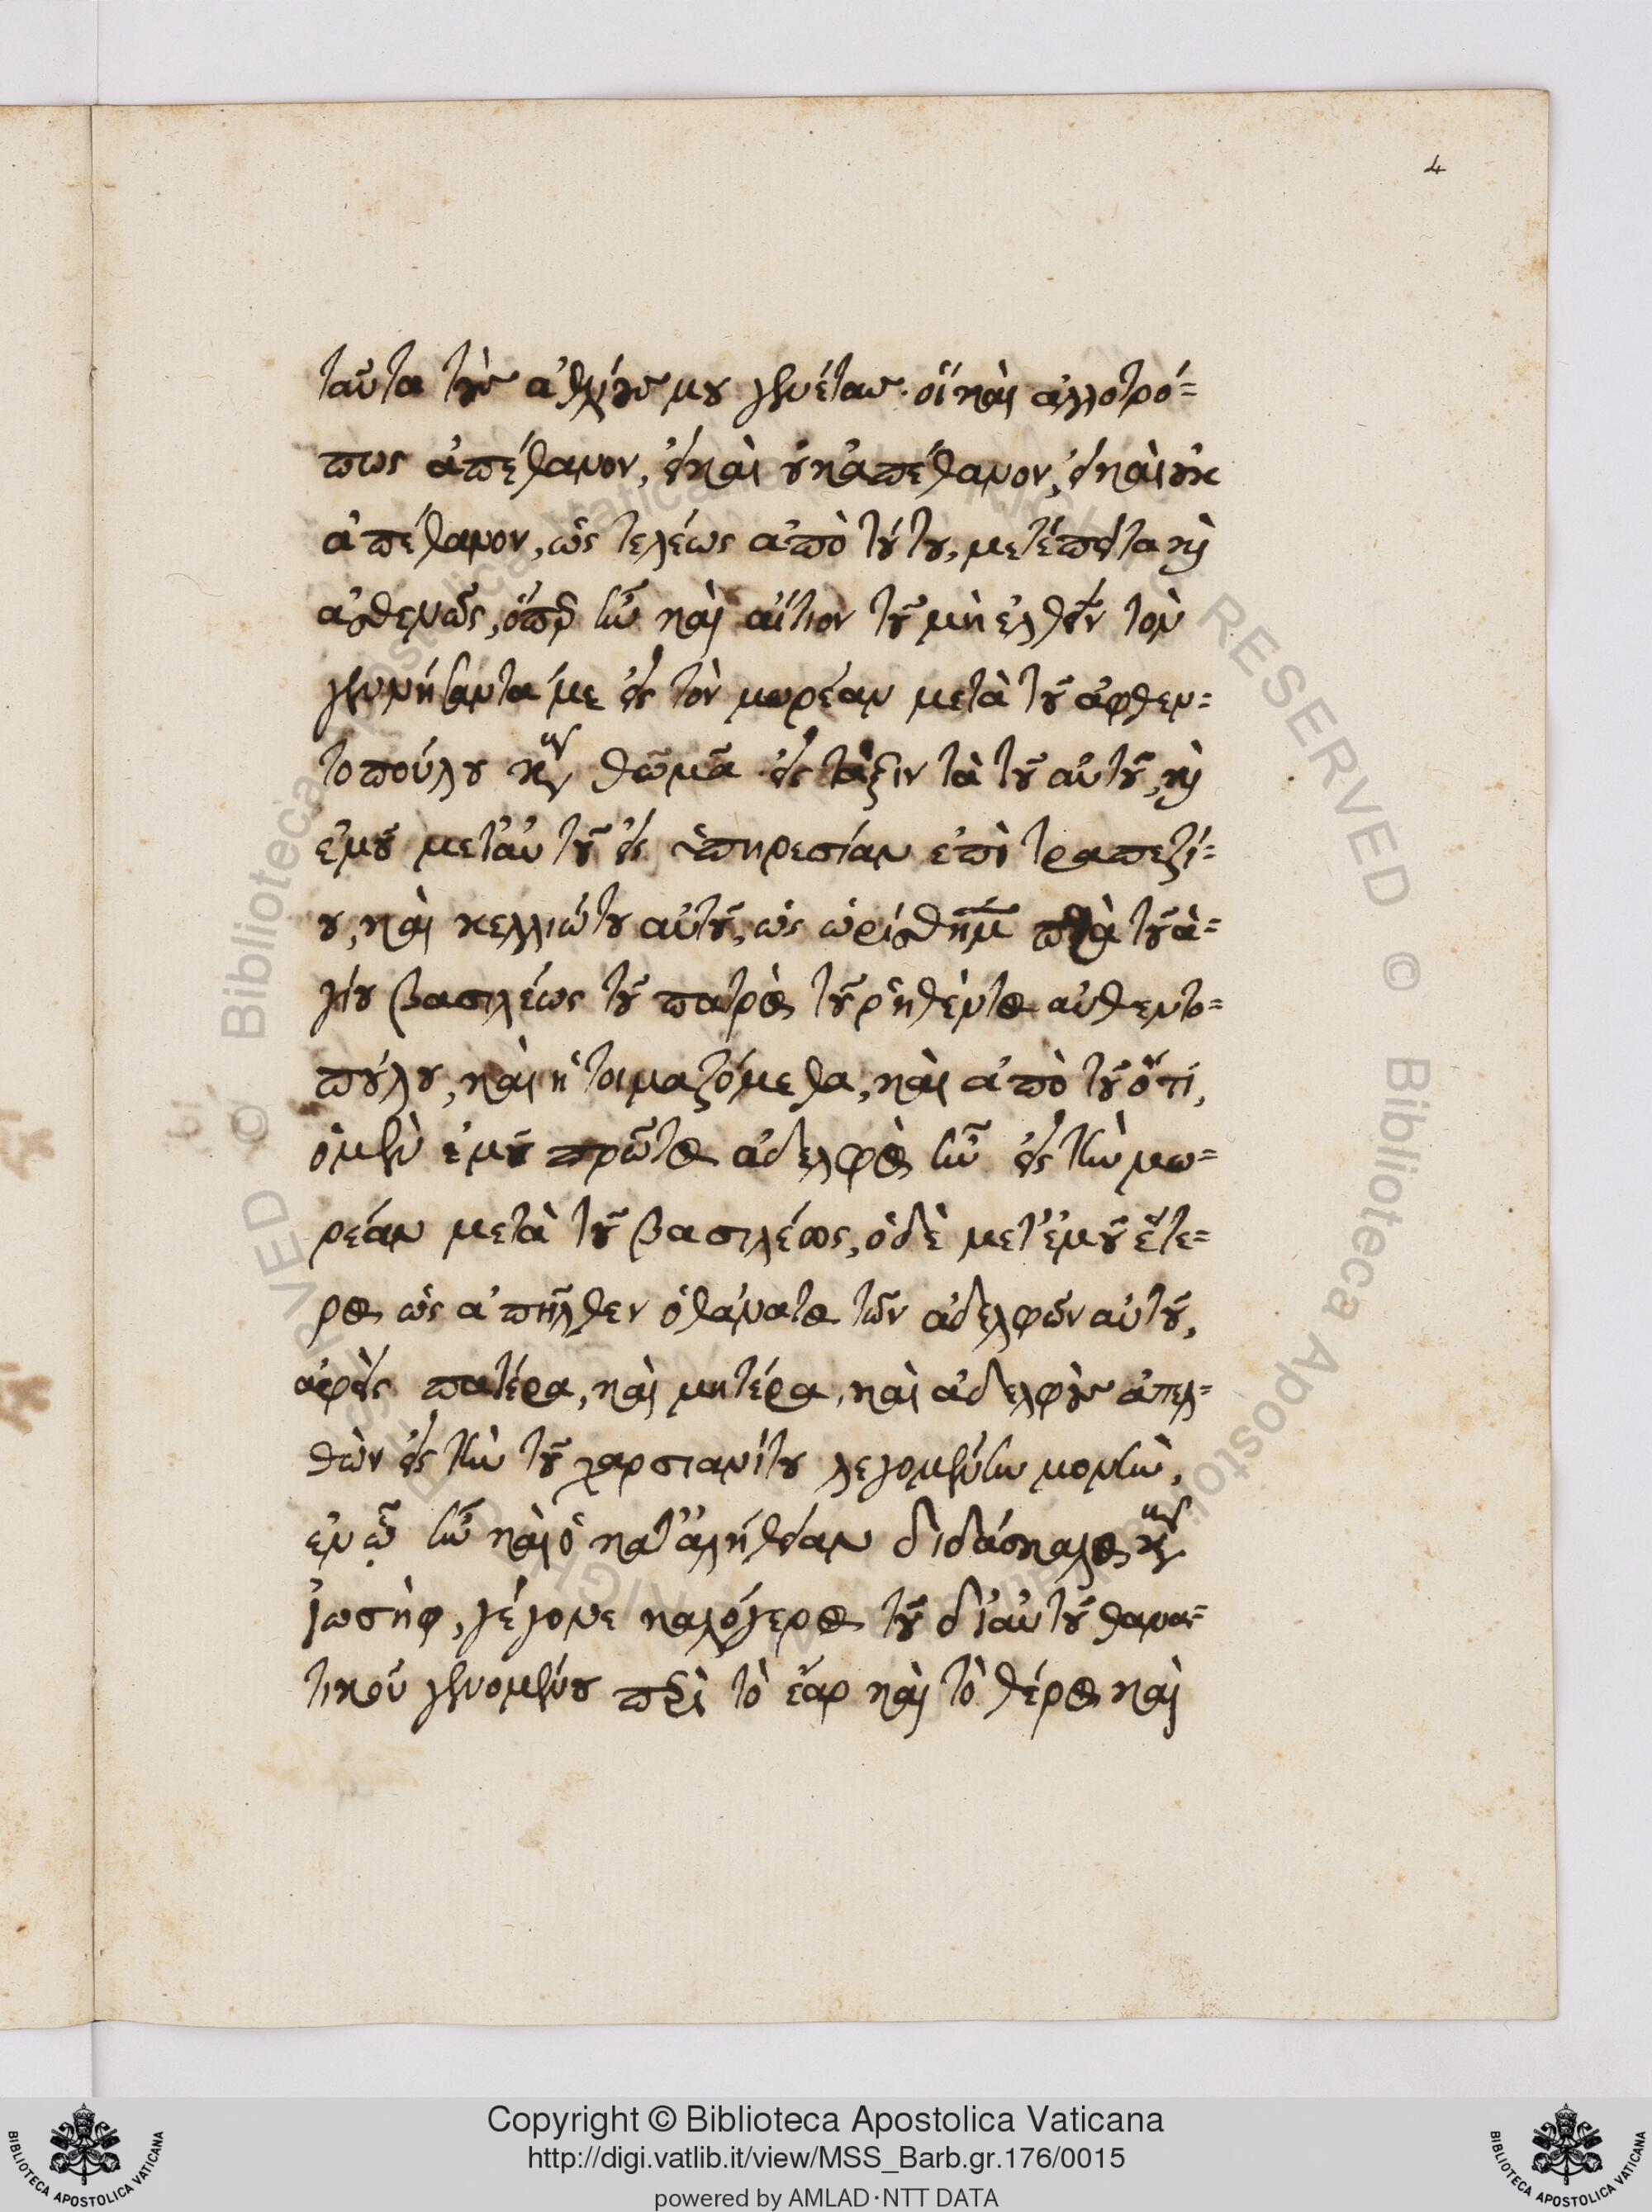 4
ταῦτα τῶν ἀθλίων μου γενέτων· οἳ καὶ ἀλλοτρό=
πως ἀπέθανον, εἰ καὶ οὐκ ἀπέθανον, εἰ καὶ οὐκ
ἀπέθανον, ὡς τελέως ἀπὸ τούτου, μετέπειτα καὶ
ἀσθενῶς, ὅπερ ἦν καὶ αἴτιον τοῦ μὴ ἐλθεῖν τὸν
γεννήσαντά με εἰς τὸν μωρέαν μετὰ τοῦ ἀφθεν=
τοπούλου κὺν θωμᾶ εἰς τάξιν τὰ τοῦ αὐτοῦ, καὶ
ἐμοῦ μετ' αὐτοῦ εἰς ὑπηρεσίαν ἐπὶ τραπεζί=
ου, καὶ κελλιώτου αὐτοῦ, ὡς ὡρίσθημεν παρὰ τοῦ ἁ=
γίου βασιλέως τοῦ πατρὸς τοῦ ῥηθέντος αὐθεντο=
πούλου, καὶ ἡτοιμαζόμεθα, καὶ ἀπὸ τοῦ ὅτι,
ὁ μὲν ἐμοῦ πρῶτος ἀδελφὸς ἦν εἰς τὴν μω=
ρέαν μετὰ τοῦ βασιλέως, ὁ δὲ μετ' ἐμοῦ ἕτε=
ρος ὡς ἀπῆλθεν ὁ θάνατος τῶν ἀδελφῶν αὐτοῦ,
ἀφεὶς πατέρα, καὶ μητέρα, καὶ ἀδελφὼν ἀπελ=
θὼν εἰς τὴν τοῦ χαρσιανίτου λεγομένην μονὴν,
ἐν ᾧ ἦν καὶ ὁ κατ' ἀλήθειαν διδάσκαλος κὺν
ἰωσὴφ, γέγονε καλόγερος τοῦ δι' αὐτοῦ θανα=
τικοῦ γενομένου περὶ τὸ ἔαρ καὶ τὸ θέρος καὶ
Copyright © Biblioteca Apostolica Vaticana
http://digi.vatlib.it/view/MSS_Barb.gr.176/0015
powered by AMLAD·NTT DATA